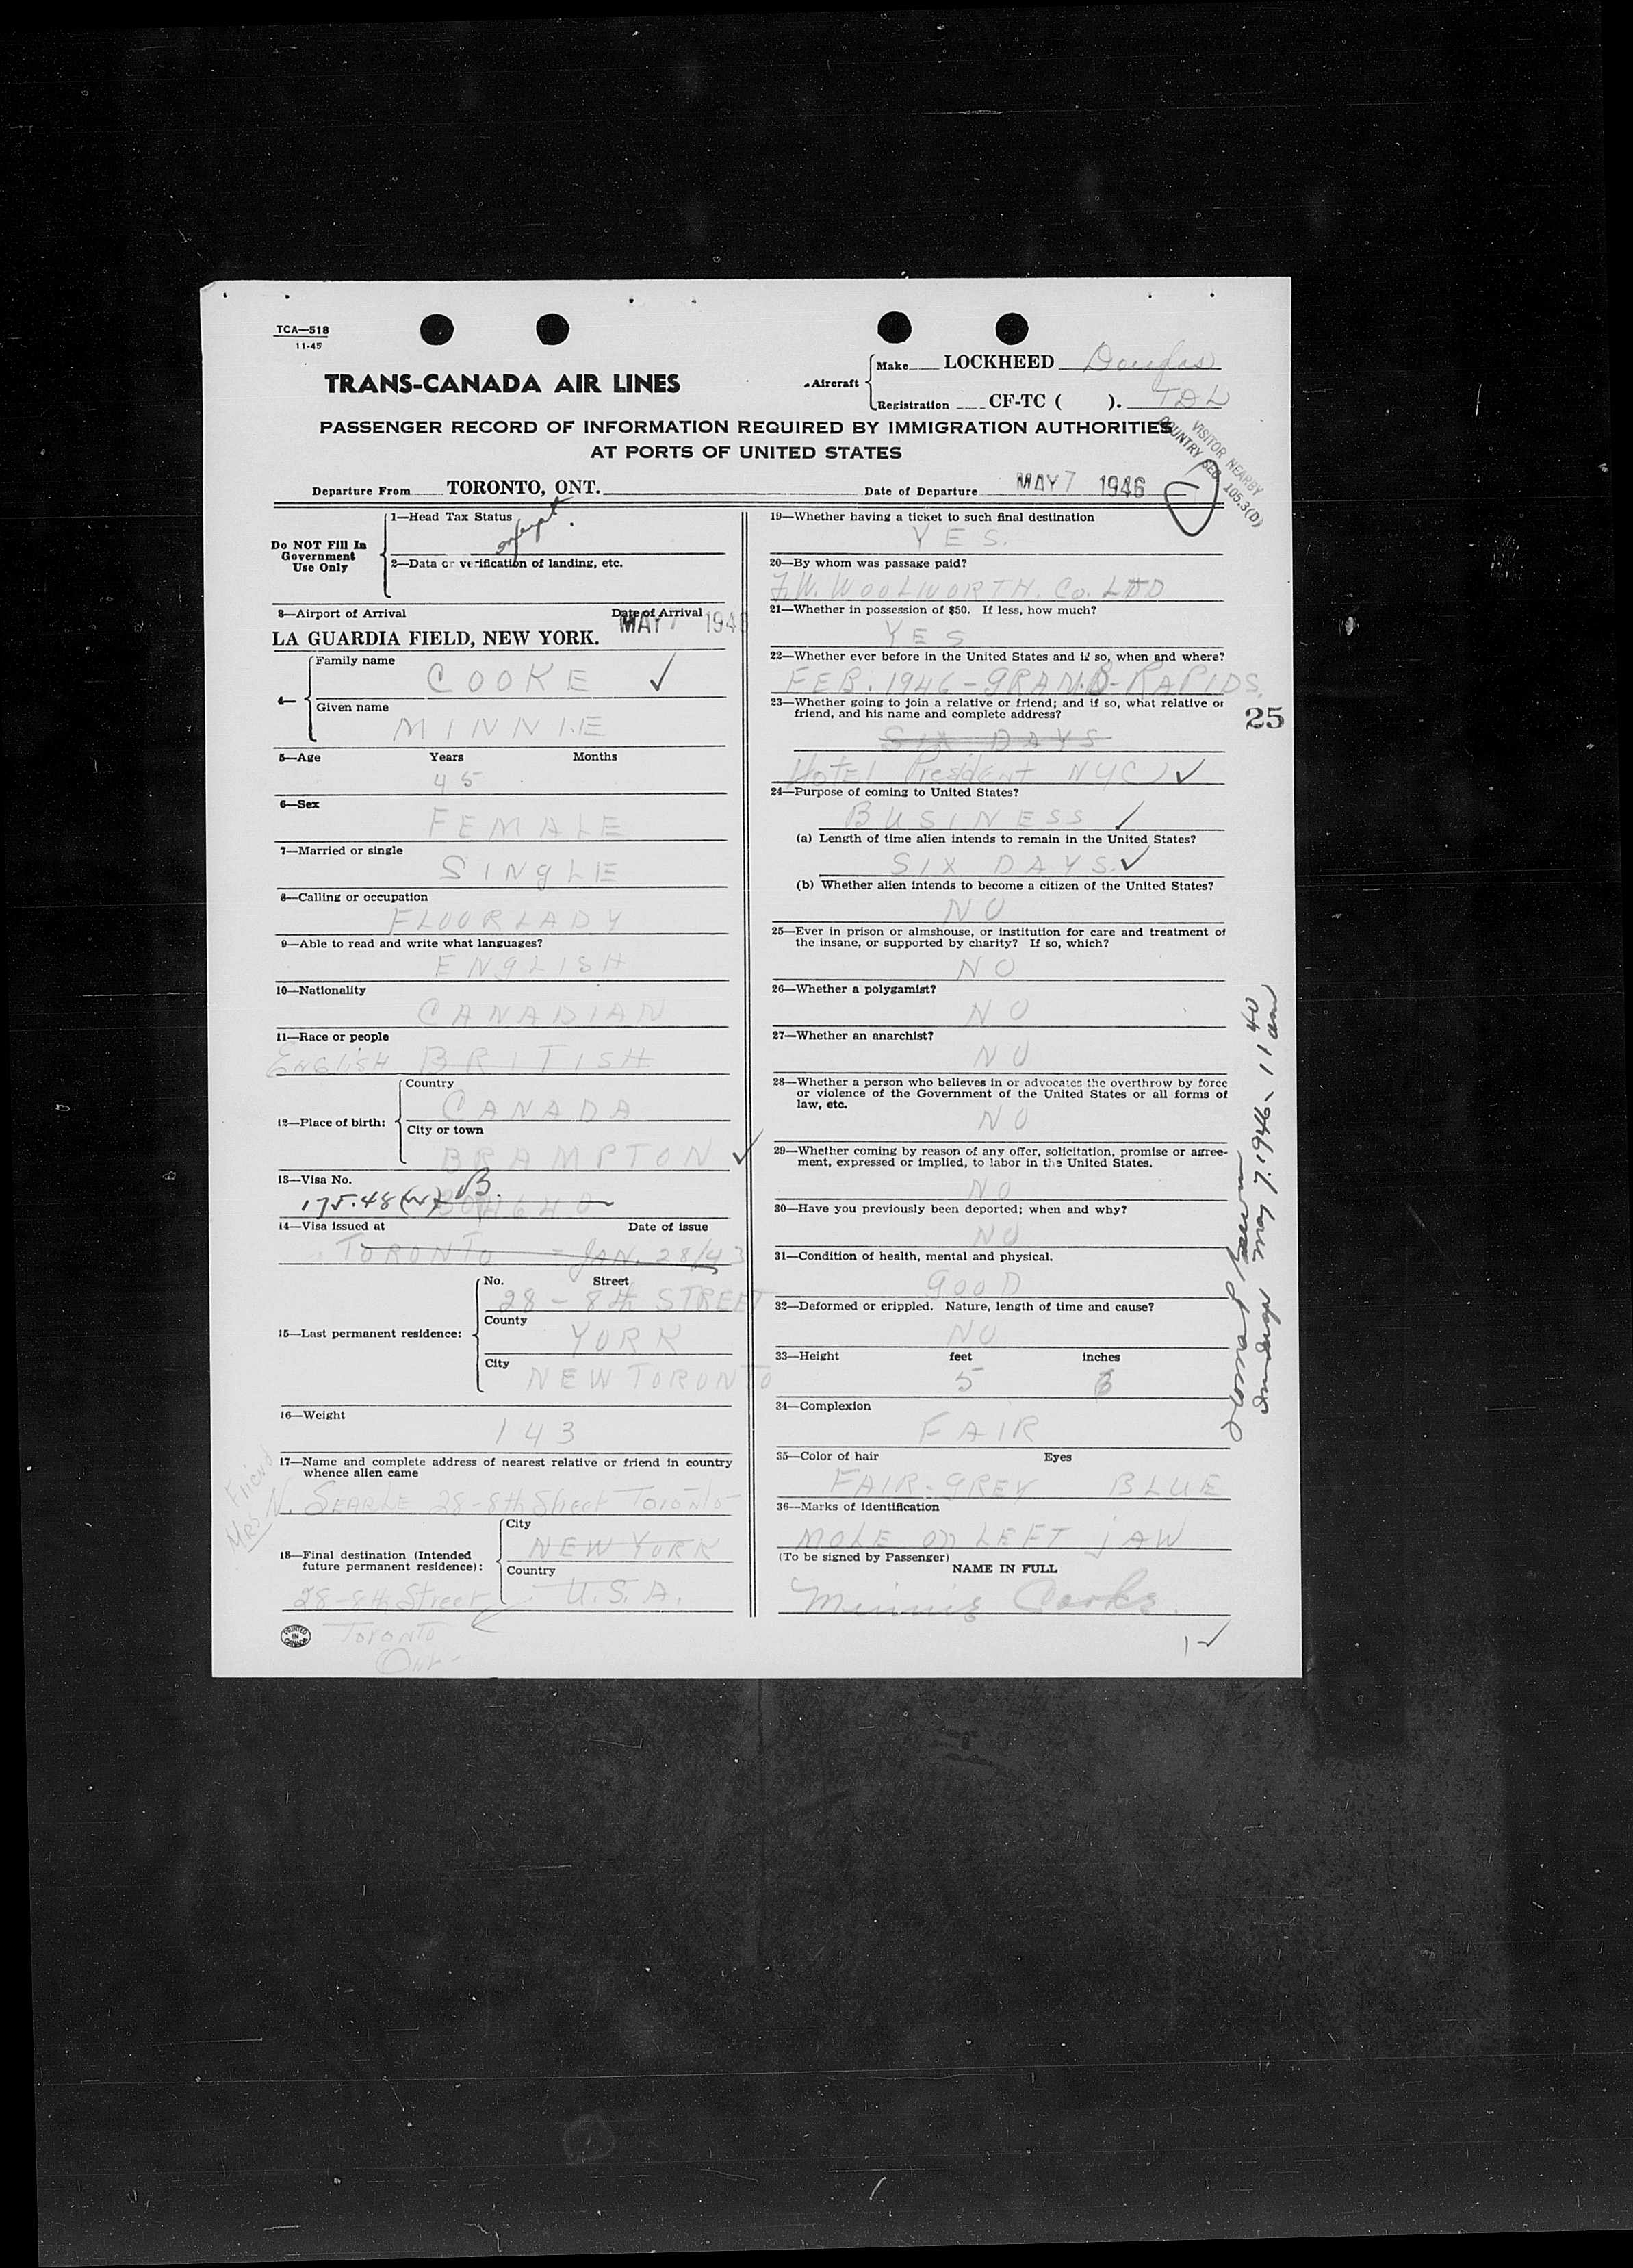 TCA—518
11-45
TRANS-CANADA AIR LINES
Aircraft
Make LOCKHEED Douglas
Registration CF-TC ( ). TDL
PASSENGER RECORD OF INFORMATION REQUIRED BY IMMIGRATION AUTHORITIES
AT PORTS OF UNITED STATES
VISITOR NEARBY
COUNTRY SEC 105.3(D)
Departure From TORONTO, ONT.
Date of Departure MAY 7 1946
Do NOT Fill In
Government
Use Only
1—Head Tax Status
2—Data or verification of landing, etc.
3—Airport of Arrival Date of Arrival
LA GUARDIA FIELD, NEW YORK. MAY 7 194
4— Family name
COOKE ✓
Given name
MINNIE
5—Age Years Months
45
6—Sex
FEMALE
7—Married or single
SINGLE
8—Calling or occupation
FLOORLADY
9—Able to read and write what languages?
ENGLISH
10—Nationality
CANADIAN
11—Race or people
English BRITISH
12—Place of birth:
Country
CANADA
City or town
BRAMPTON ✓
13—Visa No.
175.48
14—Visa issued at Date of issue
TORONTO - JAN. 28/43
15—Last permanent residence:
No. Street
28 - 8th STREET
County
YORK
City
NEW TORONTO
16—Weight
143
17—Name and complete address of nearest relative or friend in country
whence alien came
Friend
Mrs N. SEARLE 28-8th Street Toronto
18—Final destination (Intended
future permanent residence):
City
NEW YORK
Country
U.S.A.
28-8th Street
Toronto
Ont-
PRINTED
IN
CANADA
19—Whether having a ticket to such final destination
YES.
20—By whom was passage paid?
F.W. WOOLWORTH. Co. LTD
21—Whether in possession of $50. If less, how much?
YES
22—Whether ever before in the United States and if so, when and where?
FEB. 1946 - GRAND-RAPIDS.
23—Whether going to join a relative or friend; and if so, what relative or
friend, and his name and complete address?
25
SIX DAYS
Hotel President NYC ✓
24—Purpose of coming to United States?
BUSINESS ✓
(a) Length of time alien intends to remain in the United States?
SIX DAYS. ✓
(b) Whether alien intends to become a citizen of the United States?
NO
25—Ever in prison or almshouse, or institution for care and treatment of
the insane, or supported by charity? If so, which?
NO
26—Whether a polygamist?
NO
27—Whether an anarchist?
NO
28—Whether a person who believes in or advocates the overthrow by force
or violence of the Government of the United States or all forms of
law, etc.
NO
29—Whether coming by reason of any offer, solicitation, promise or agree-
ment, expressed or implied, to labor in the United States.
NO
30—Have you previously been deported; when and why?
NO
31—Condition of health, mental and physical.
GOOD
32—Deformed or crippled. Nature, length of time and cause?
NO
33—Height feet inches
5
34—Complexion
FAIR
35—Color of hair Eyes
FAIR-GREY BLUE
36—Marks of identification
MOLE on LEFT jAW
(To be signed by Passenger)
NAME IN FULL
Minnie Cooke.
May 7. 1946 - 11 40
am